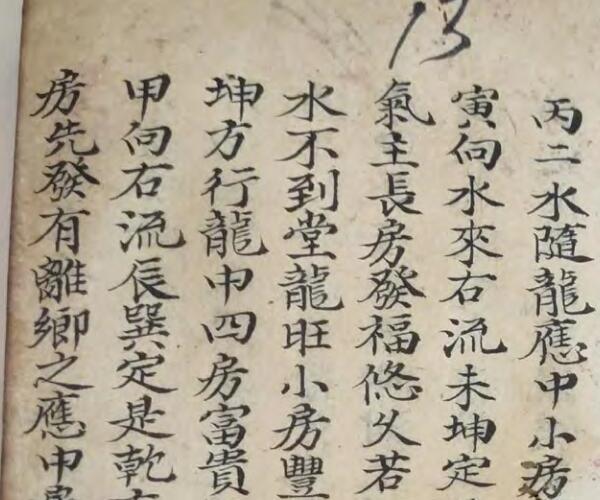 13
丙二水隨龍應中小房
寅向水來右流未坤定
氣主長房發福悠久若
水不到堂龍旺小房豐
坤方行龍中四房富貴
甲向右流辰巽定是乾
房先發有離鄉之應中